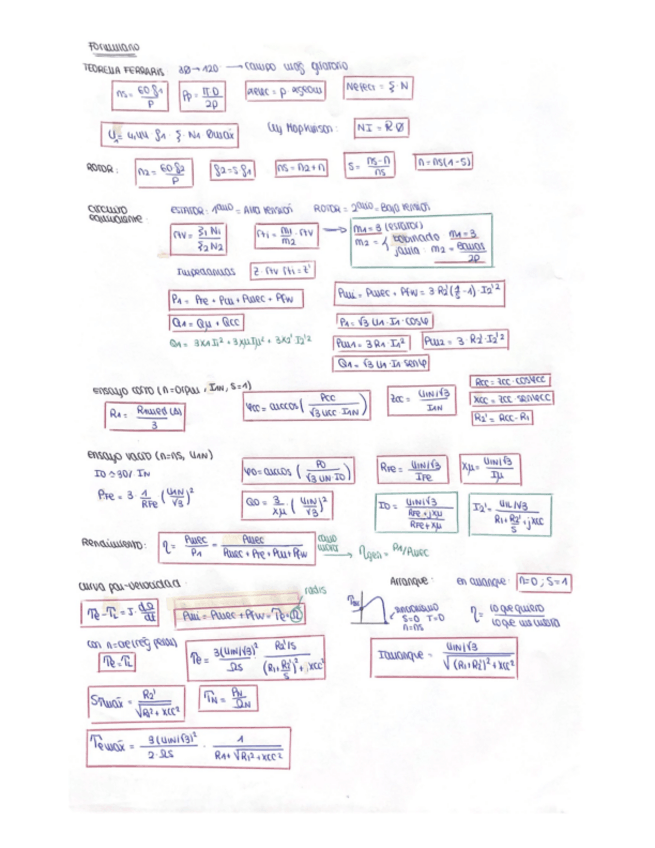 Formulario
TEOREMA FERRARIS 3Ø → 120 → campo mag giratorio
ns = 60 f1 / P
Pp = π·D / 2p
αelec = p · αgeom
Nefect = ξ · N
U1 = 4,44 f1 · ξ · N1 Φmax
Ley Hopkinson: NI = R Ø
ROTOR: n2 = 60 f2 / P
f2 = s f1
ns = n2 + n
S = (ns - n) / ns
n = ns(1-s)
circuito equivalente:
ESTATOR = 1ario = Alta tensión ROTOR = 2ario = Baja tensión
rtv = ξ1 N1 / ξ2 N2
rti = m1/m2 · rtv →
m1 = 3 (estator)
m2 = { bobinado m2 = 3
jaula: m2 = Barras / 2p
Impedancias Z · rtv rti = Z'
P1 = Pfe + Pcu + Pmec + Pfw
Pmi = Pmec + Pfw = 3 R2'(1/s - 1) · I2'²
Q1 = Qμ + Qcc
P1 = √3 U1 · I1 · cosφ
Q1 = 3X1I1² + 3XμIμ² + 3X2'I2'²
Pcu1 = 3 R1 I1²
Pcu2 = 3 R2' I2'²
Q1 = √3 U1 I1 senφ
ensayo corto (n=0rpm, I1N, S=1)
R1 = Rmed(Δ) / 3
φcc = arccos( Pcc / √3 Ucc · I1N )
Zcc = U1N/√3 / I1N
Rcc = Zcc · cosφcc
Xcc = Zcc · senφcc
R2' = Rcc - R1
ensayo vacío (n=ns, U1N)
I0 ≃ 30% IN
PFe = 3 · 1/RFe (U1N/√3)²
φ0 = arccos( P0 / √3 UN I0 )
RFe = U1N/√3 / IFe
Xμ = U1N/√3 / Iμ
Q0 = 3/Xμ · (U1N/√3)²
I0 = U1N/√3 / (RFe · jXμ / RFe + Xμ)
I2' = U1N/√3 / (R1 + R2'/S + jXcc)
Rendimiento: η = Pmec / P1 = Pmec / (Pmec + Pfe + Pcu + Pfw)
como motor → ηgen = P1/Pmec
curva par-velocidad:
Te - TL = J · dΩ/dt
Pmi = Pmec + Pfw = Te · Ω
rad/s
Arranque: en arranque: n=0; S=1
S=0 T=0
n=ns
η = lo que quiero / lo que me cuesta
Te = 3(U1N/√3)² / Ωs · R2'/S / ((R1 + R2'/S)² + Xcc²)
Iarranque = U1N/√3 / √((R1 + R2')² + Xcc²)
STmax = R2' / √(R1² + Xcc²)
TN = PN / ΩN
Temax = 3(U1N/√3)² / 2·Ωs · 1 / (R1 + √(R1² + Xcc²))